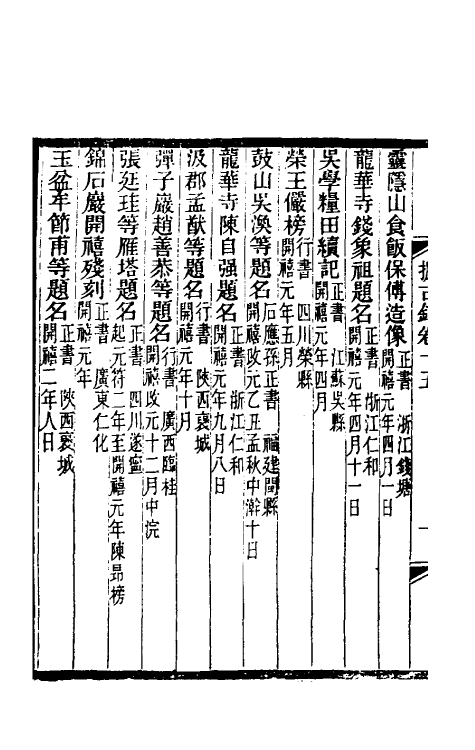 攈古錄卷十五 一
靈隱山食飯保傅造像 正書 浙江錢塘 開禧元年四月一日
龍華寺錢象祖題名 正書 浙江仁和 開禧元年四月十一日
吳學糧田續記 正書 江蘇吳縣 開禧元年四月
榮王儼榜 行書 四川榮縣 開禧元年五月
鼓山吳渙等題名 石應孫正書 福建閩縣 開禧改元乙丑孟秋中澣十日
龍華寺陳自强題名 正書 浙江仁和 開禧元年九月八日
汲郡孟猷等題名 行書 陝西襃城 開禧元年十月
彈子巖趙善恭等題名 行書 廣西臨桂 開禧改元十二月中浣
張廷珪等雁塔題名 正書 四川遂寧 起元符二年至開禧元年陳昻榜
錦石巖開禧殘刻 正書 廣東仁化 開禧元年
玉盆牟節甫等題名 正書 陝西襃城 開禧二年人日